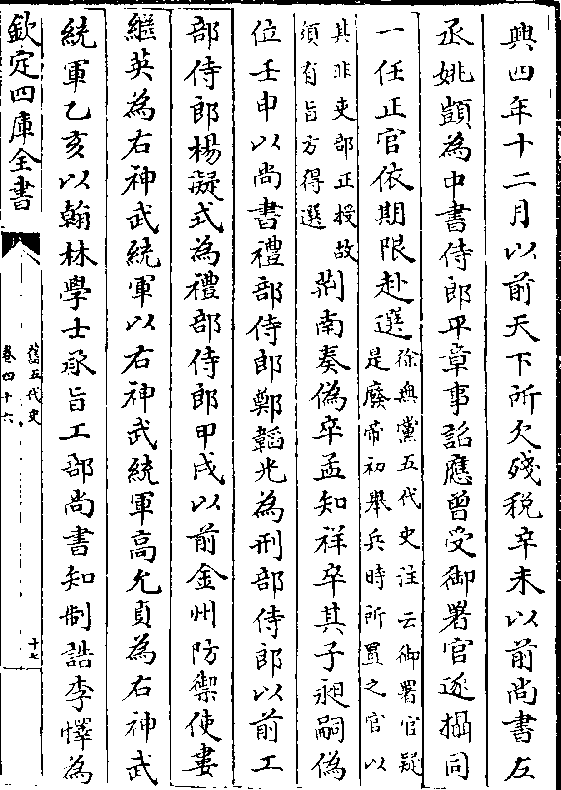 興四年十二月以前天下所欠殘稅辛未以前尚書左
丞姚顗為中書侍郎平章事詔應曾受御署官逐攝同
一任正官依期限赴選徐無黨五代史注云御署官疑
是廢帝初舉兵時所置之官以
其非吏部正授故
須有旨方得選荆南奏偽卒孟知祥卒其子昶嗣偽
位壬申以尚書禮部侍郎鄭韜光為刑部侍郎以前工
部侍郎楊凝式為禮部侍郎甲戌以前金州防禦使婁
繼英為右神武統軍以右神武統軍高允貞為右神武
統軍乙亥以翰林學士承旨工部尚書知制誥李懌為
欽定四庫全書
舊五代史
卷四十六
十七